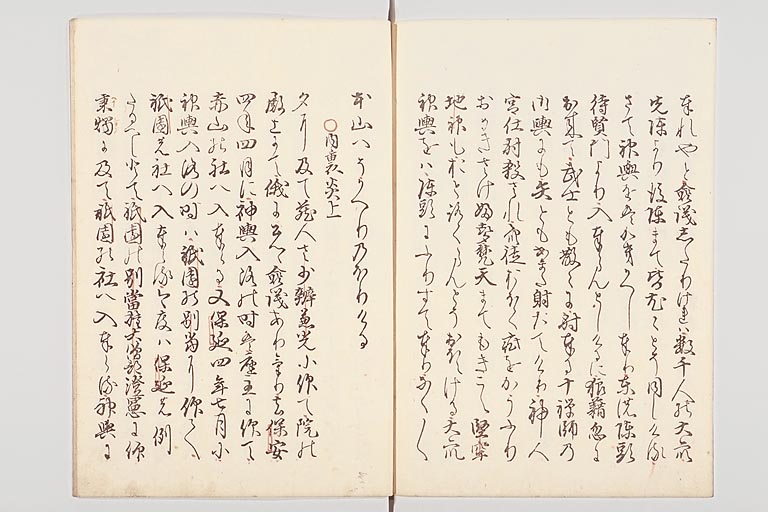 まれやと僉議したりけれは数千人の大衆
先陣より後陣まて皆尤々とそ同しける
さて神輿をかきかへし奉り東の陣頭
待賢門より入奉らんとしけるに狼藉忽に
出来て武士とも散々に射奉る十禅師の
御輿にも矢ともあまた射たてけり神人
宮仕射殺され衆徒おほく疵をかうふり
おめきさけふ声梵天まてもきこえ堅牢
地神もおとろくらんとそおほえける大衆
神輿をは陣頭にふりすて奉りなくなく
本山へそかへりのほりける
○内裏炎上
夕に及て蔵人左少辨兼光に仰て院の
殿上にて俄に公卿僉議あり去る保安
四年四月に神輿入洛の時は座主に仰て
赤山の社へ入奉らる又保延四年七月に
神輿入洛の時は祇園の別当に仰て
祇園の社へ入奉らる今度は保延の例
たるへしとて祇園の別當権大僧都澄憲に仰
秉燭に及て祇園の社へ入奉る神輿に